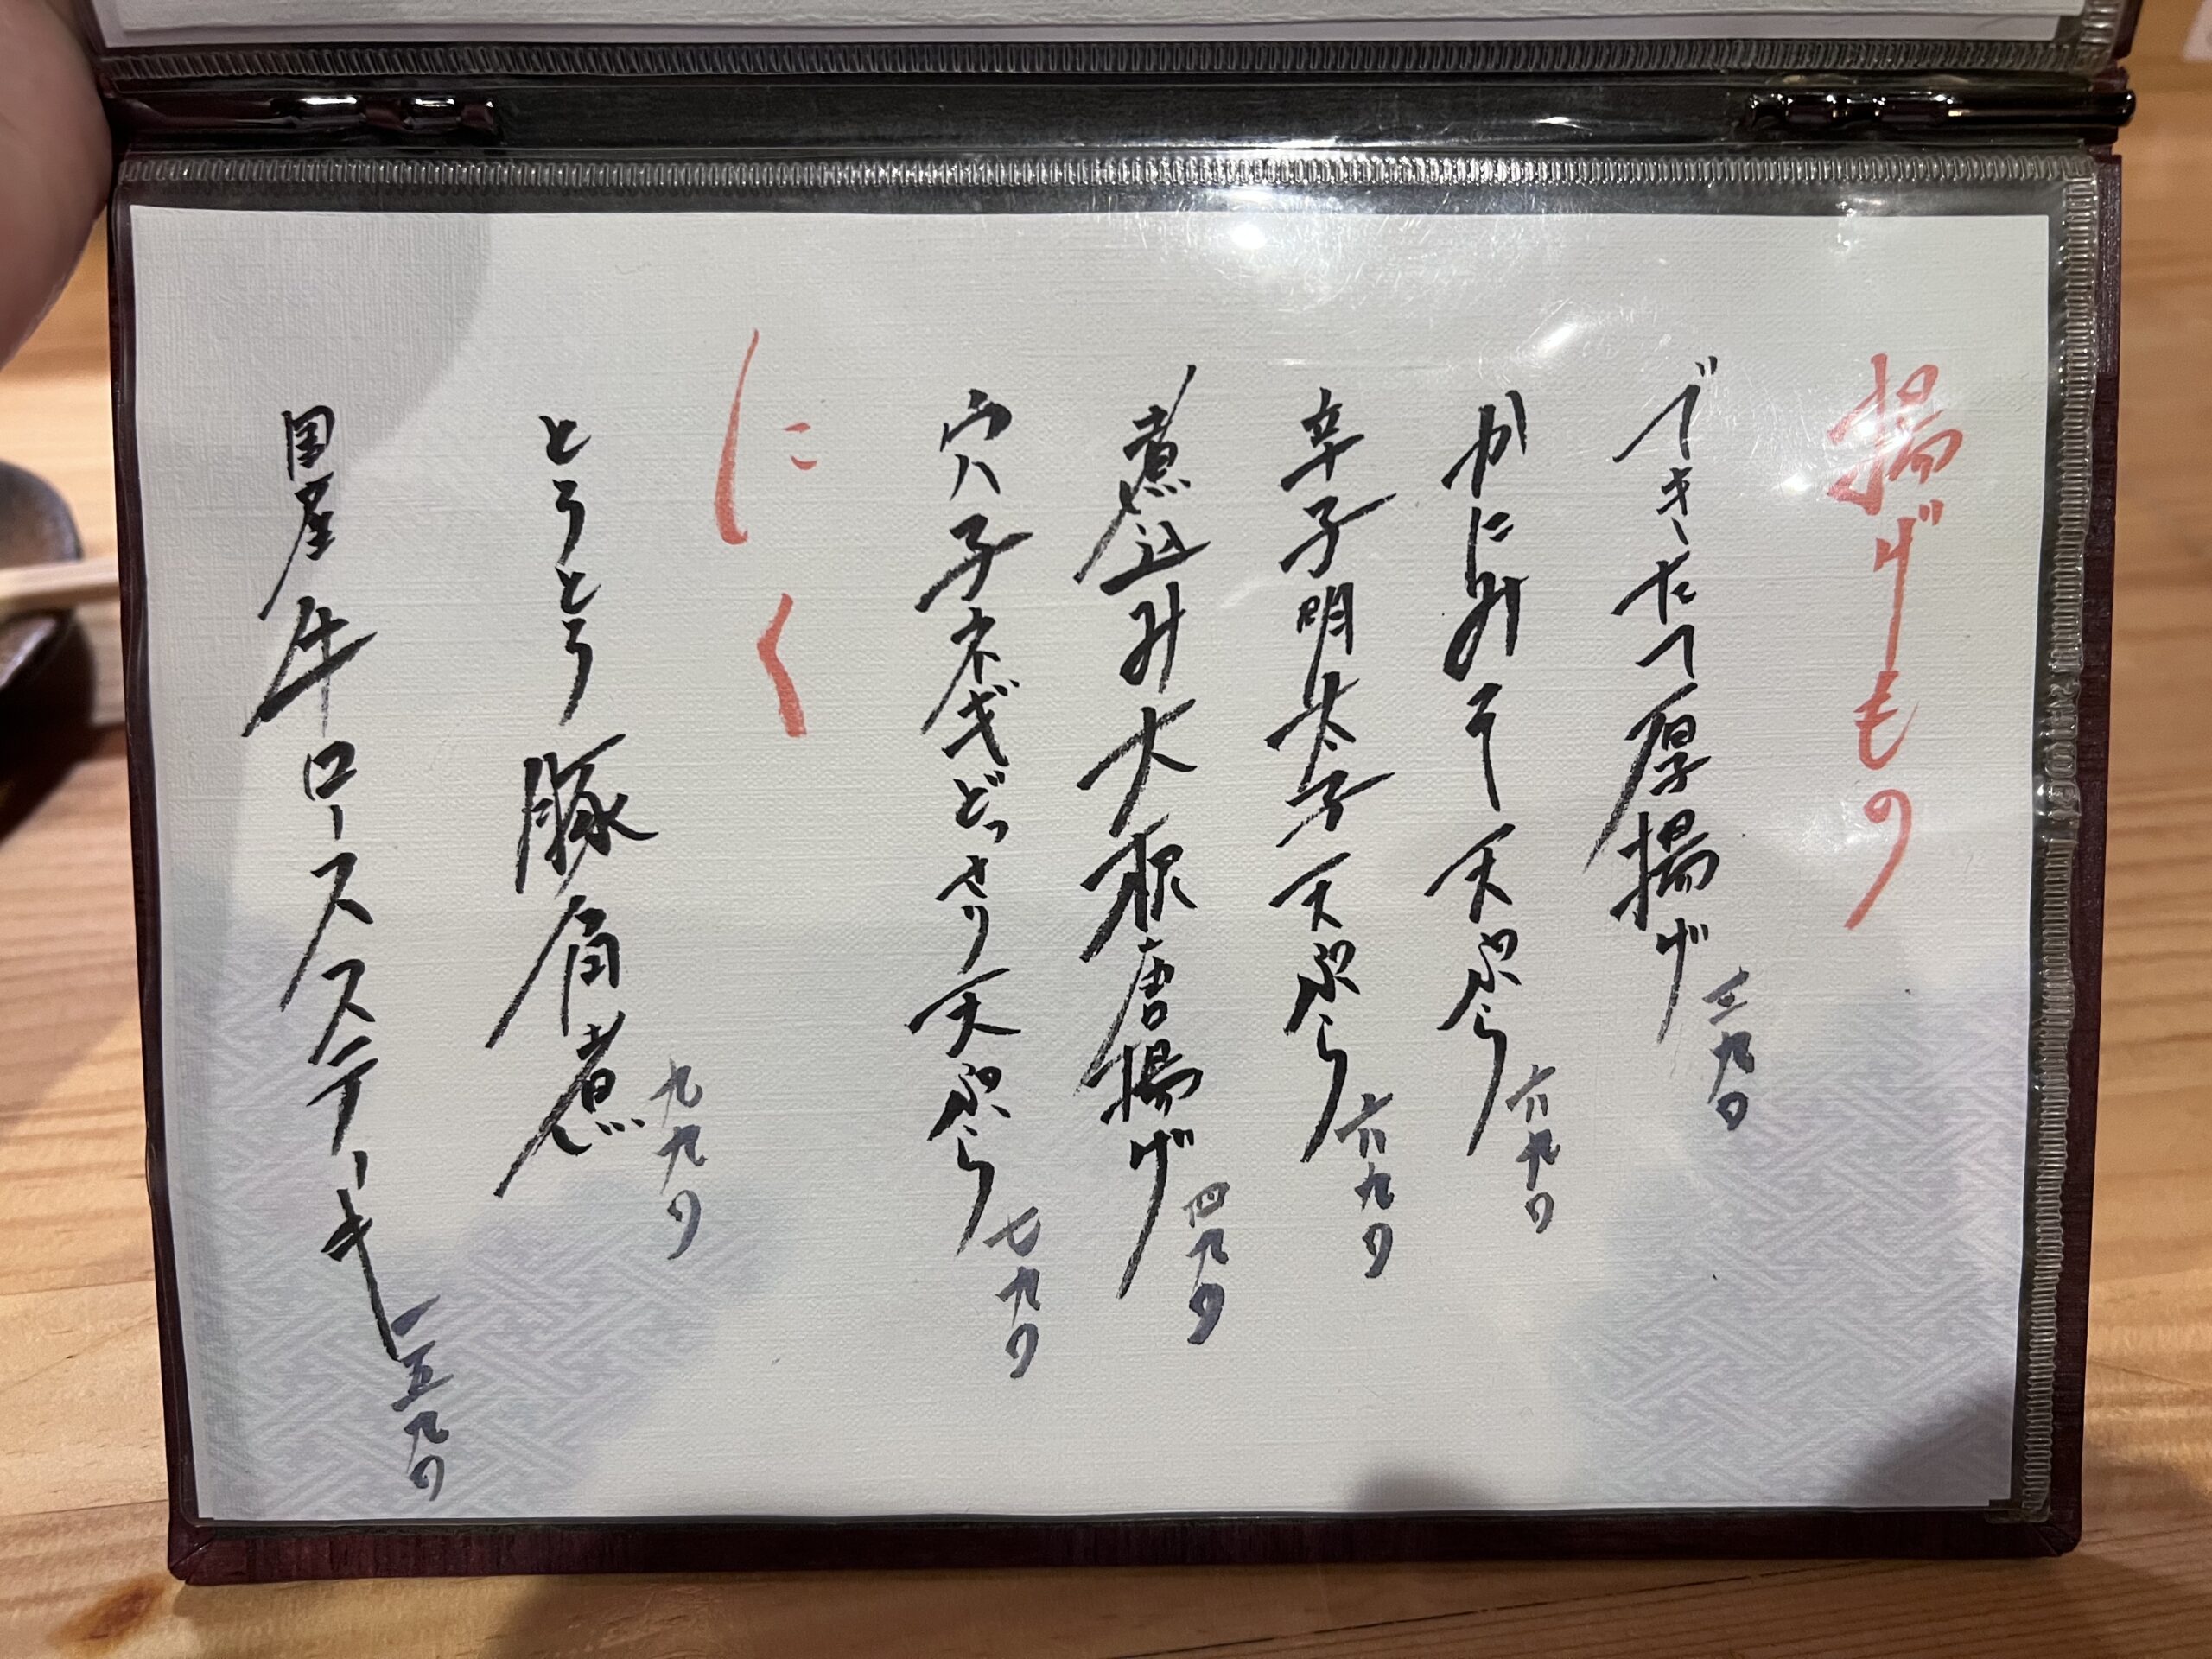 揚げもの
できたて厚揚げ 三九〇
かにみそ天ぷら 六九〇
辛子明太子天ぷら 六九〇
煮込み大根唐揚げ 四九〇
穴子ネギどっさり天ぷら 七九〇
にく
とろとろ豚角煮 九九〇
国産牛ロースステーキ 一五九〇